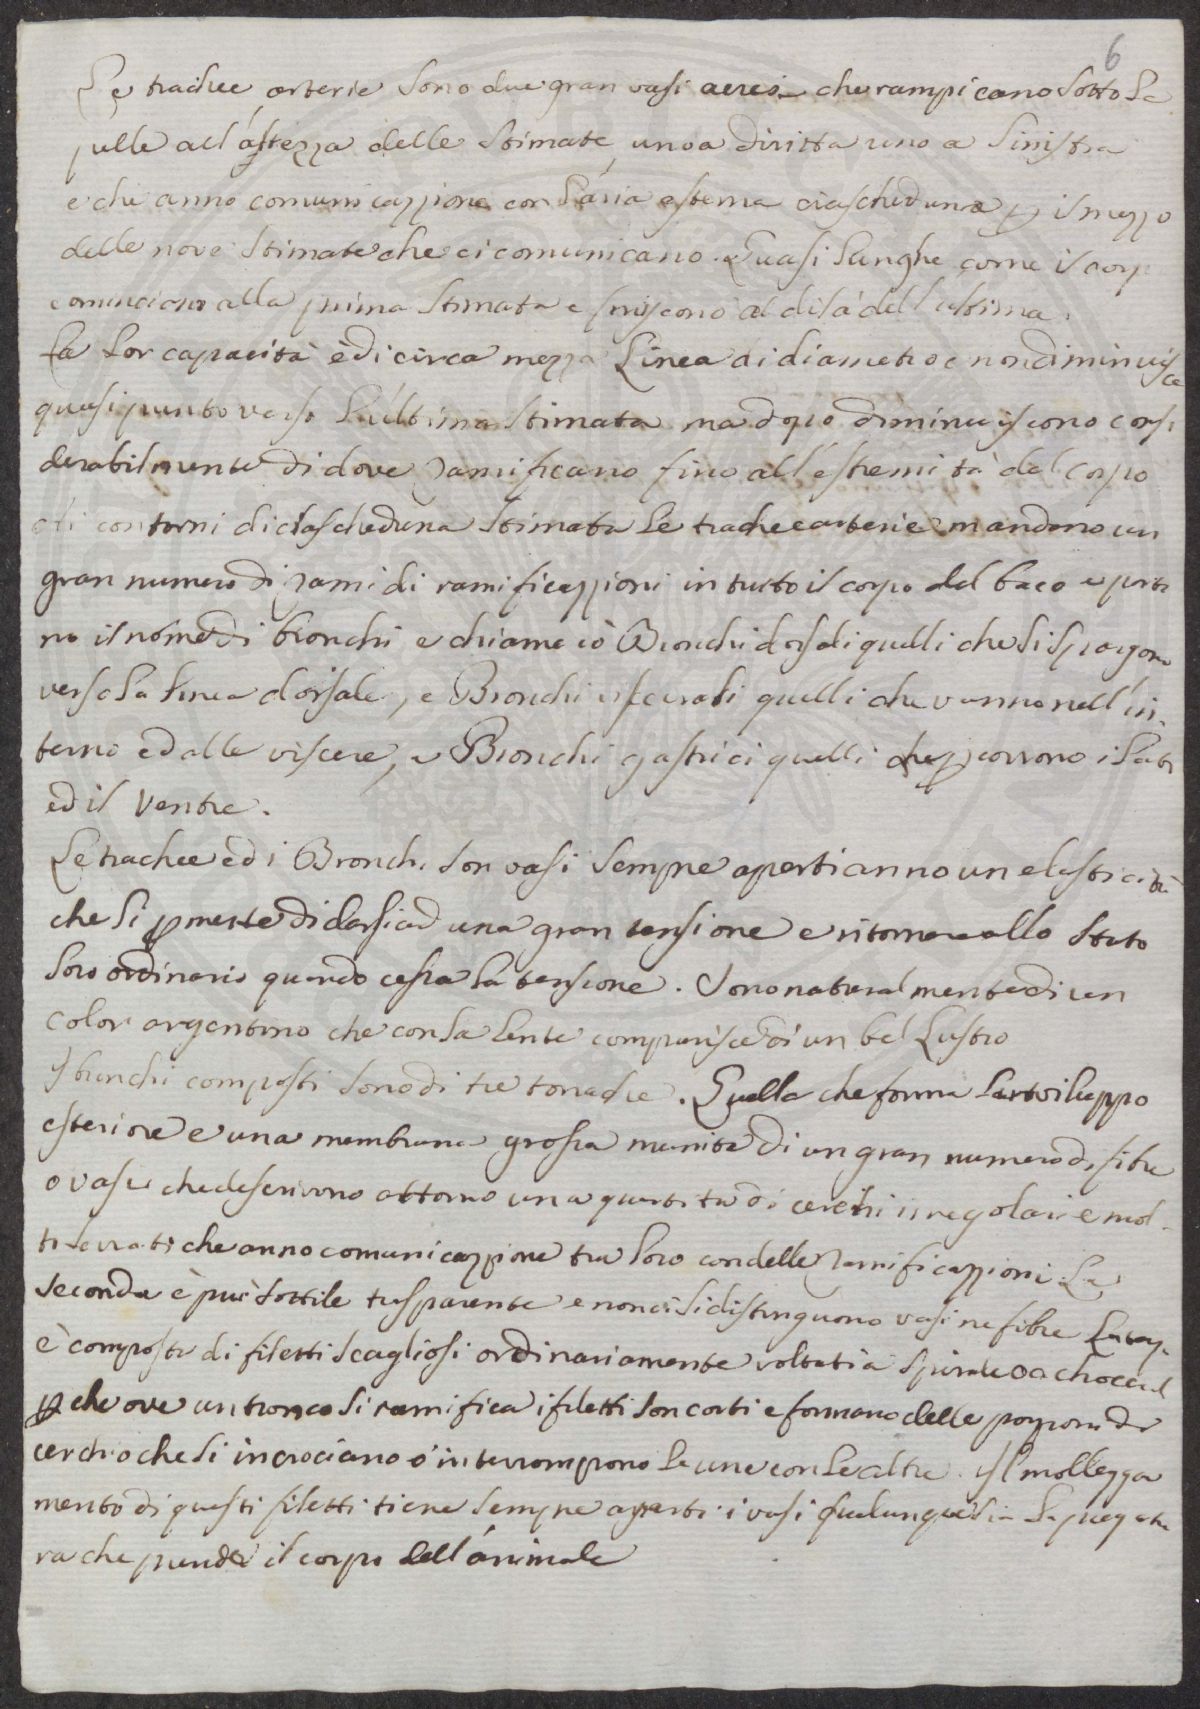 6
Le trachee arterie sono due gran vasi aerei che rampicano sotto la
pelle all'altezza delle Stimate, uno a diritta uno a Sinistra
e che anno comunicazzione con l'aria esterna ciascheduna p il mezzo
delle nove Stimate che ci comunicano. Quasi lunghe come il corp
cominciano alla prima Stimata e finiscono al di là dell'ultima.
La lor capacità è di circa mezza Linea di diametro e non diminuisce
quasi punto verso l'ultima Stimata ma dopo diminuiscono consi
derabilmente di dove ramificano fino all'estremità del corpo
contorni di ciascheduna Stimata le trachee arterie mandono un
gran numero di rami di ramificazzioni in tutto il corpo del baco e porta
no il nome di bronchi e chiame iò Bronchi dorsali quelli che si spargono
verso la linea dorsale, e Bronchi viscerali quelli che vanno nell'in-
terno ed alle viscere, e Bronchi gastrici quelli che pcorrono i lati
ed il Ventre.
Le trachee ed i Bronchi son vasi sempre aperti anno un elasticità
che li pmette di darsi ad una gran tensione e ritornare allo stato
loro ordinario quando cessa la tensione. Sono naturalmente di un
color argentino che con la lente comparisce di un bel Lustro
I brunchi composti sono di tre tonache. Quella che forma l'artviluppo
esteriore e una membrana grossa munita di un gran numero di fibre
o vasi che descrivono attorno una quantità di cerchi irregolari e mol-
ti serrati che anno comunicazzione tra loro con delle ramificazzioni. La
seconda è più sottile trasparente e non ci si distinguono vasi ne fibre La
è composta di filetti scagliosi ordinariamente voltati a spirale o a
p che ove un tronco si ramifica i filetti son corti e formano delle porzioni di
cerchio che si incrociano o interrompono le une con le altre. Il mollezza
mento di questi filetti tiene sempre aperti i vasi qualunque sia la piegatu
ra che prende il corpo dell'animale